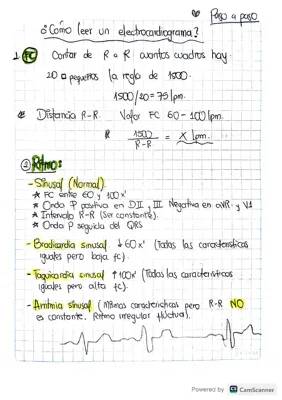 Paso a paso
¿Cómo leer un electrocardiograma?
1 FC Contar de R a R cuantos cuadros hay.
20 □ pequeños la regla de 1500.
1500/20 = 75 lpm.
* Distancia R-R. Valor FC 60 - 100 lpm.
R 1500 / R-R = X lpm.
② Ritmo:
- Sinusal (Normal).
* FC entre 60 y 100x'
* Onda P positiva en DII y III Negativa en aVR y V1
* Intervalo R-R (Ser constante).
* Onda P seguida del QRS
- Bradicardia sinusal ↓60x' (Todas las características
iguales pero baja fc).
- Taquicardia sinusal ↑100x' (Todas las características
iguales pero alta fc).
- Arritmia sinusal (Mismas características pero R-R NO
es constante. Ritmo irregular fluctua).
Powered by CS CamScanner